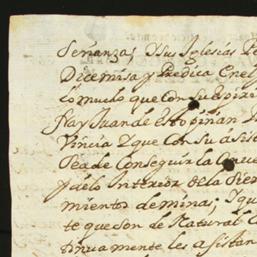 señanza; Y sus Iglesias
Dice misa y Predica en el
lo mucho que con su espiri
fray Juan de estopiñan
Vincia Y que con su asis
Pea de Conseguir la
y delo Interior de la
miento de minas; Y qu
te que son de Natural C
tinua mente les asistan